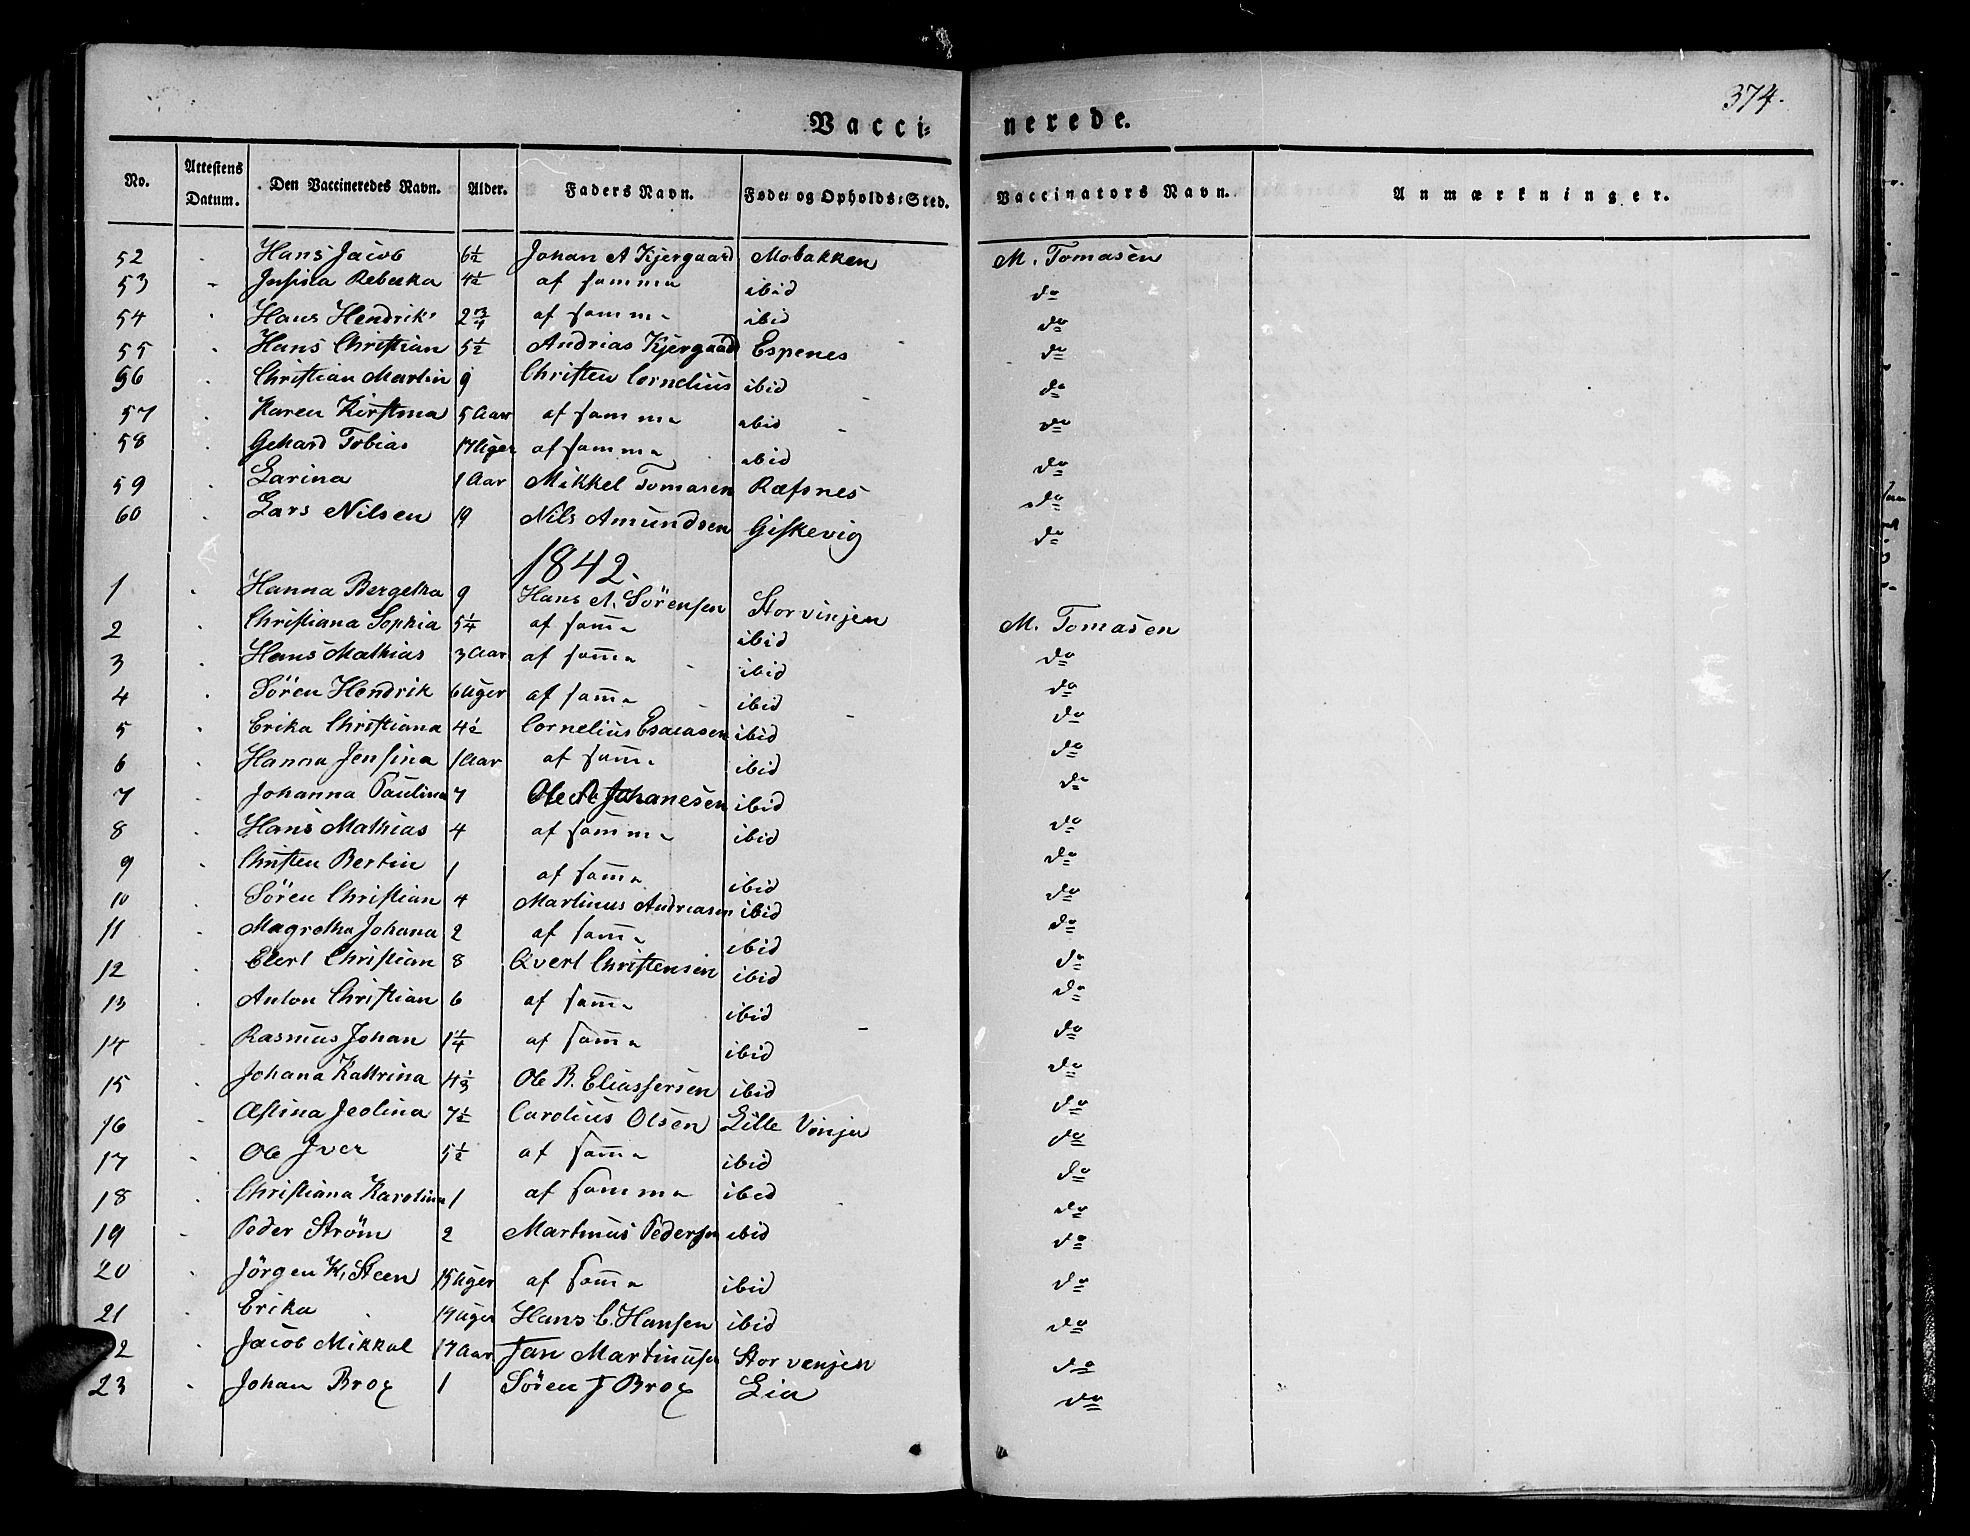 374.
Vacci- nerede.
No. Attestens Datum. Den Vaccineredes Navn. Alder. Faders Navn. Føde- og Opholds-Sted. Vaccinators Navn. Anmærkninger.
52 Hans Jacob 6½ Johan A Kjergaard Mobakken M. Tomasen
53 Rebecka 4½ af samma ibid do
54 Hans Hendrik 2¾ af samma ibid do
55 Hans Christian 5½ Andrias Kjergaard Espenes do
56 Christian Martin 9 Christen Cornelius ibid do
57 Karen Kirstina 5 Aar af samma ibid do
58 Gehard Tobias 17 Uger af samma ibid do
59 Larina 1 Aar Mikkel Tomasen Ræfsnes do
60 Lars Nilsen 19 Nils Amundsen Giskevig do
1842.
1 Hanna Bergetha 9 Hans A. Sörensen Storvinjen M. Tomasen
2 Christiana Sophia 5¼ af sam̅a ibid do
3 Hans Mathias 3 Aar af sam̅a ibid do
4 Sören Hendrik 6 Uger af sam̅a ibid do
5 Erika Christiana 4½ Cornelius Esaiasen ibid do
6 Hanna Jensina 1 Aar af sam̅a ibid do
7 Johanna Paulina 7 Ole A Johanesen ibid do
8 Hans Mathias 4 af samma ibid do
9 Christen Bertin 1 af sam̅a ibid do
10 Sören Christian 4 Martinus Andreasen ibid do
11 Magretha Johana 2 af sam̅a ibid do
12 Elert Christian 8 Qvert Christensen ibid do
13 Anton Christian 6 af sam̅a ibid do
14 Rasmus Johan 1¼ af sam̅a ibid do
15 Johana Kattrina 4⅓ Ole R. Eliassersen ibid do
16 Æstina Jeolina 7½ Carolius Olsen Lille Vinjen do
17 Ole Iver 5½ af sam̅a ibid do
18 Christiana Karolina 1 af samma ibid do
19 Peder Ström 2 Martinus Pedersen ibid do
20 Jörgen K. Steen 15 Uger af sam̅a ibid do
21 Erika 19 Uger Hans C. Hansen ibid do
22 Jacob Mikkal 17 Aar Jan Martinusen Storvenjen do
23 Johan Brox 1 Sören J Brox Lia do